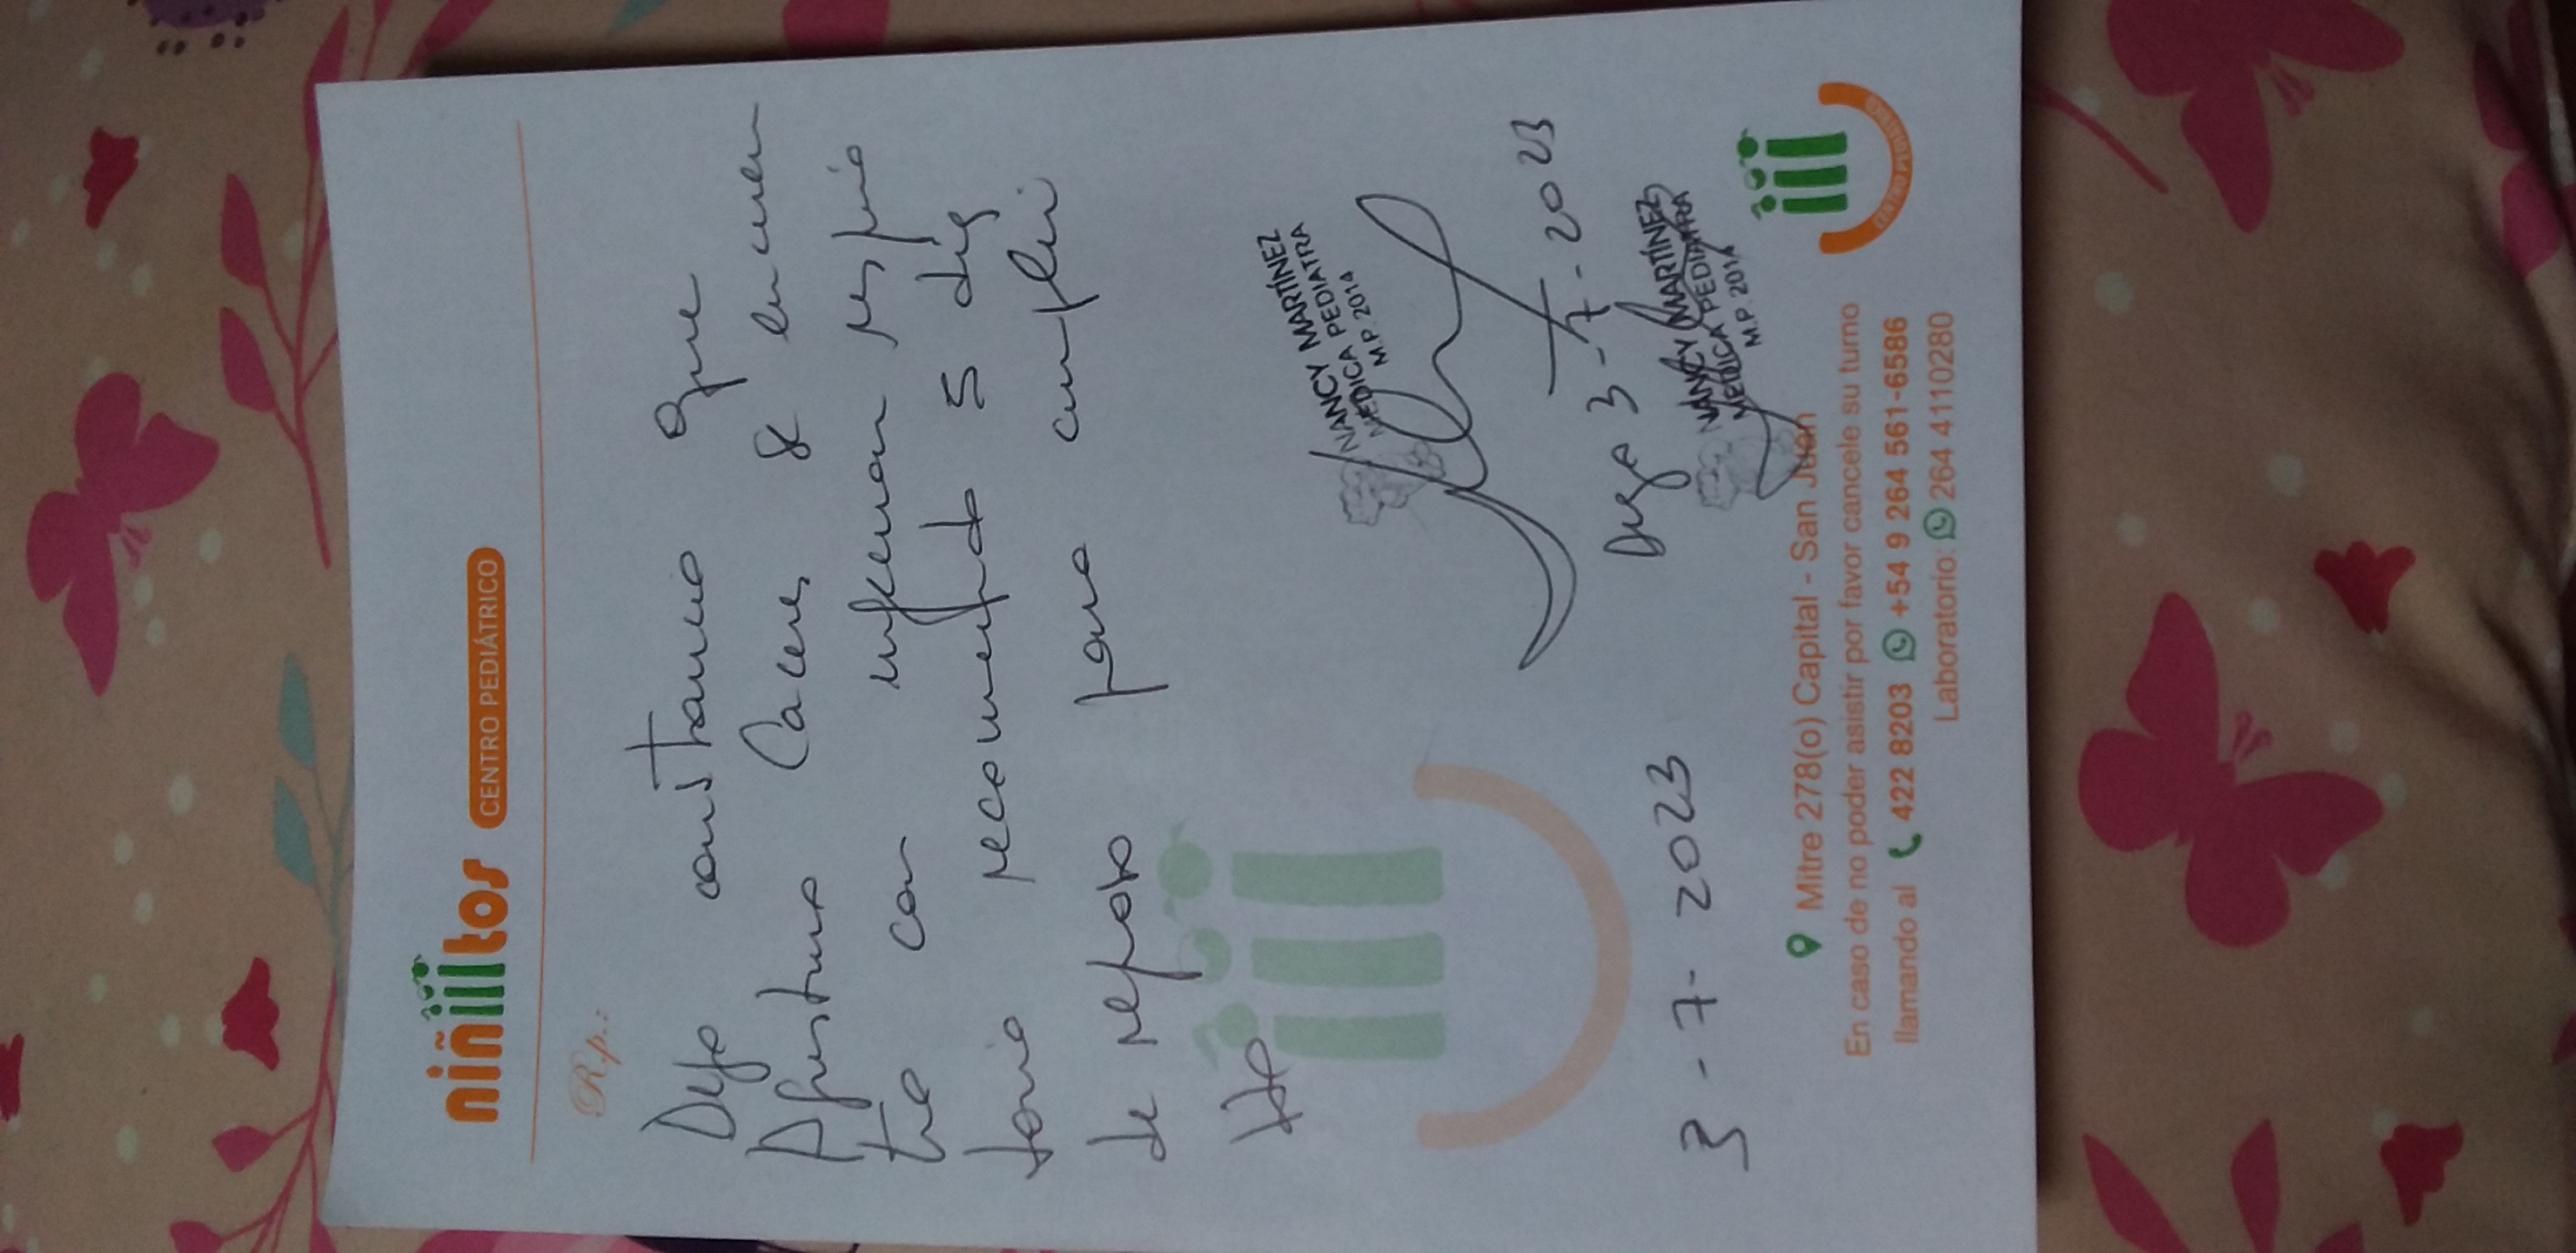 niñitos CENTRO PEDIÁTRICO
Rp.:
Dejo constancia que
Agustina Caceres se encuen
tra con infeccion respira
toria recomendando 5 dias
de reposo para cumplir
NANCY MARTÍNEZ
MEDICA PEDIATRA
M.P. 2014
3-7-2023
Digo 3-7-2023
NANCY MARTÍNEZ
MEDICA PEDIATRA
M.P. 2014
Mitre 278(o) Capital - San Juan
En caso de no poder asistir por favor cancele su turno
llamando al 422 8203 +54 9 264 561-6586
Laboratorio: 264 4110280
CENTRO PEDIÁTRICO